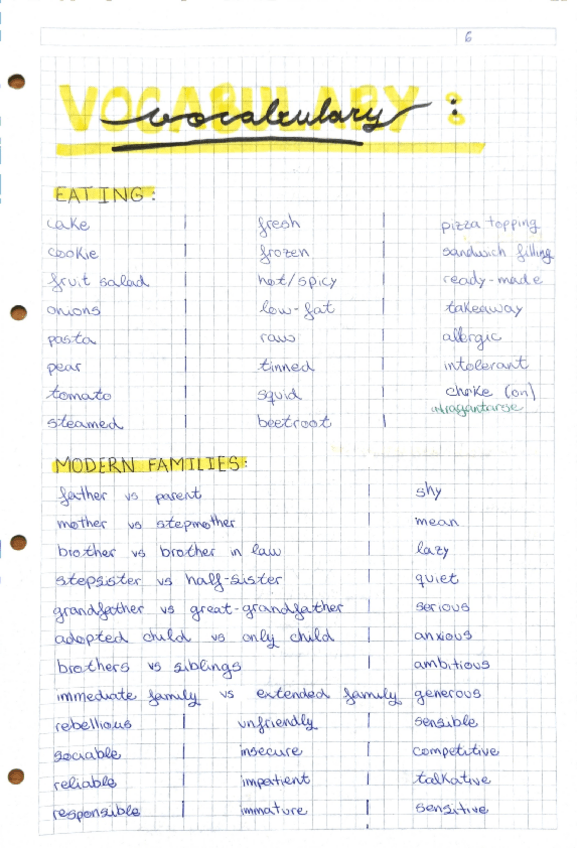 6
VOCABULARY:
vocabulary
EATING:
cake | fresh | pizza topping
cookie | frozen | sandwich filling
fruit salad | hot/spicy | ready-made
onions | low-fat | takeaway
pasta | raw | allergic
pear | tinned | intolerant
tomato | squid | choke (on)
atragantarse
steamed | beetroot |
MODERN FAMILIES:
father vs parent | shy
mother vs stepmother | mean
brother vs brother in law | lazy
stepsister vs half-sister | quiet
grandfather vs great-grandfather | serious
adopted child vs only child | anxious
brothers vs siblings | ambitious
immediate family vs extended family generous
rebellious | unfriendly | sensible
sociable | insecure | competitive
reliable | impatient | talkative
responsible | immature | sensitive